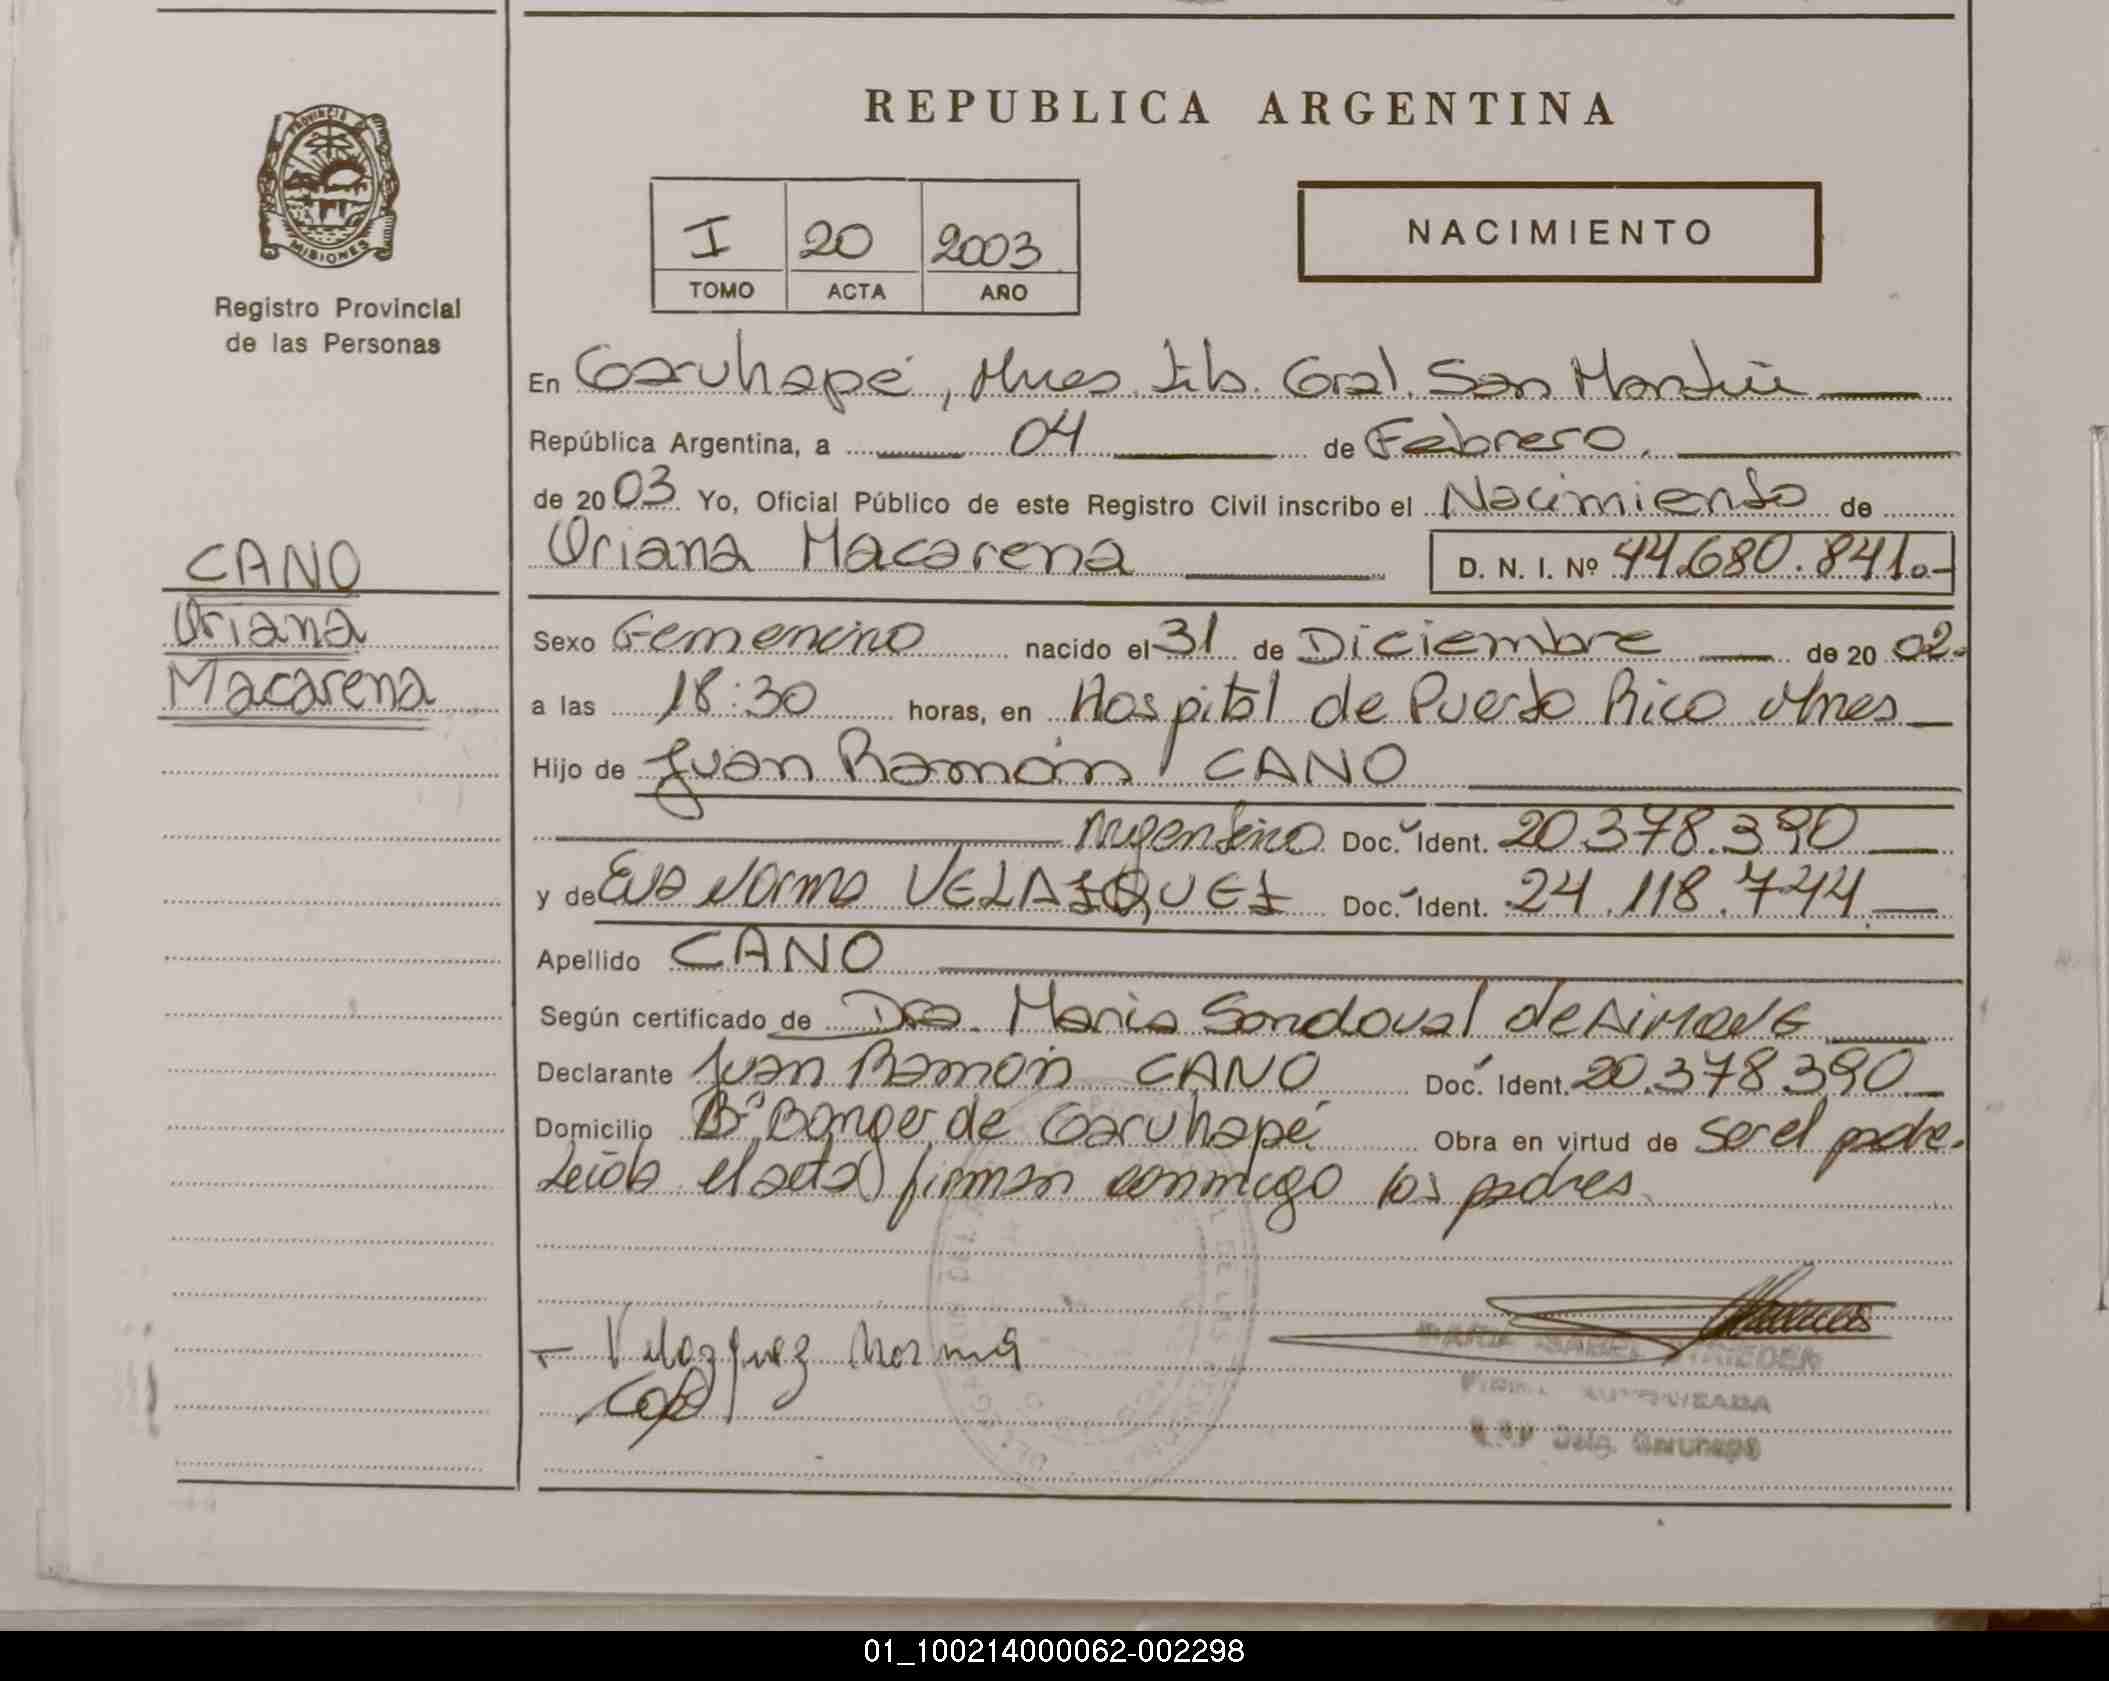 REPUBLICA ARGENTINA
PROVINCIA DE
MISIONES
Registro Provincial
de las Personas
I 20 2003
TOMO ACTA AÑO
NACIMIENTO
En Garuhapé, Mnes. Gral. San Martín
República Argentina, a 04 de Febrero
de 2003 Yo, Oficial Público de este Registro Civil inscribo el Nacimiento de
Oriana Macarena D. N. I. Nº 44.680.841.-
CANO
Oriana
Macarena
Sexo Femenino nacido el 31 de Diciembre de 2002.
a las 18:30 horas, en Hospital de Puerto Rico Mnes
Hijo de Juan Ramón CANO
Argentino Doc. Ident. 20.378.390
y de Eva Norma VELAZQUEZ Doc. Ident. 24.118.744
Apellido CANO
Según certificado de Dra. Maria Sandoval de
Declarante Juan Ramón CANO Doc. Ident. 20.378.390
Domicilio Bº Banger de Garuhapé Obra en virtud de ser el padre.
Leída el acta firman conmigo los padres.
Velazquez Norma
MARIA ISABEL
FIRMA AUTORIZADA
Delg. Garuhapé
01_100214000062-002298